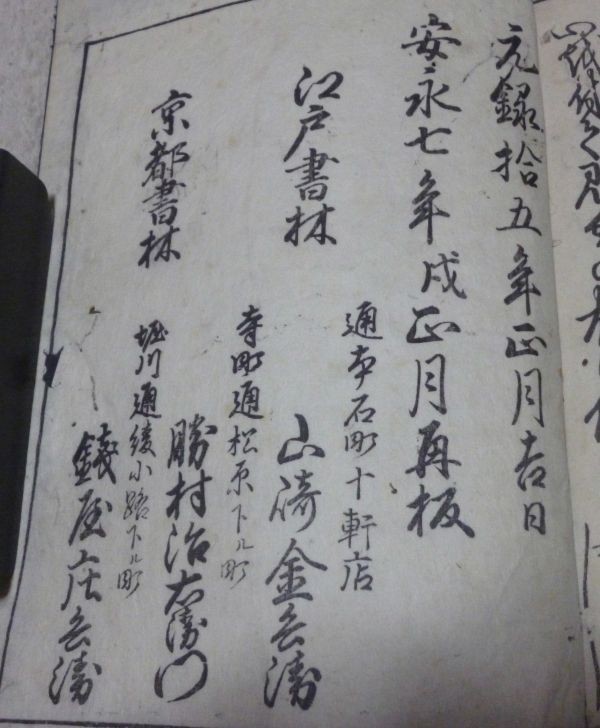 元録拾五年正月吉日
安永七年戌正月再板
通本石町十軒店
江戸書林
山﨑金兵衛
寺町通松原下ル町
勝村治右衛門
京都書林
堀川通綾小路下ル町
錢屋庄兵衛